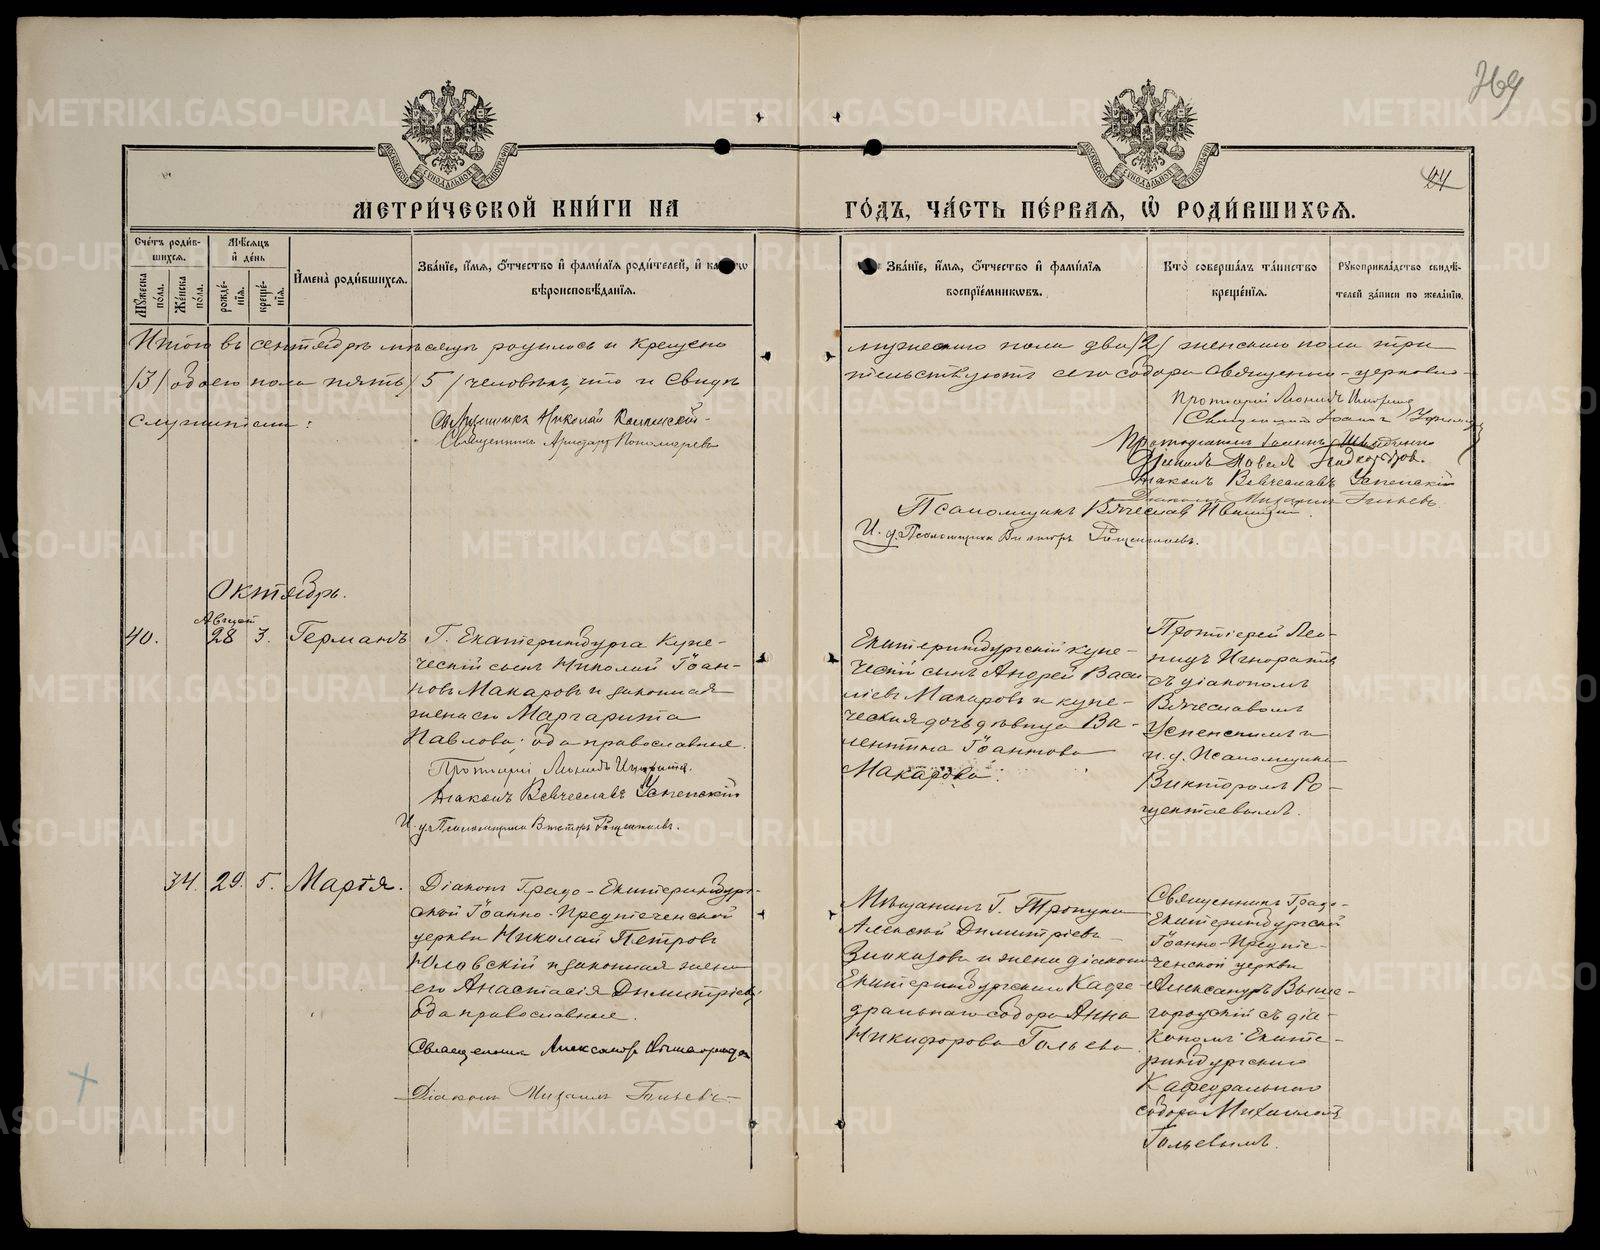 769
44
МЕТРИ́ЧЕСКОЙ КНИ́ГИ НА ГО́ДЪ, ЧА́СТЬ ПЕ́РВАЯ, Ѡ РОДИ́ВШИХСЯ.
Сче́тъ роди́в-
шихся.
Му́жеска по́ла.
Же́нска по́ла.
Мѣ́сяцъ
и҆ де́нь
рожде́нїя.
креще́нїя.
И҆мена̀ роди́вшихся.
Зва́нїе, и҆́мя, ѻ҆́тчество и҆ фами́лїя роди́телей, и҆
вѣроисповѣ́данїя.
Зва́нїе, и҆́мя, ѻ҆́тчество и҆ фами́лїя
воспрїе́мниковъ.
Кто̀ соверша́лъ та́инство
креще́нїя.
Рꙋкоприкла́дство свидѣ́-
телей за́писи по жела́нїю.
Итого въ сентябрѣ мѣсяцѣ родилось и крещено
/3/ обоего пола пять /5/ человѣкъ, что и свидѣ
служители:
Священникъ Николай
Священникъ Аристархъ Пономаревъ
мужескаго пола два /2/ женскаго пола три
тельствуютъ сего собора священно-церковно-
Протоіерей Леонидъ Игноратовъ
Священникъ Іоаннъ
Протодіаконъ Іоаннъ
Діаконъ Павелъ
Діаконъ Вячеславъ Успенскій
Діаконъ Михаилъ Гольевъ
Псаломщикъ Вячеславъ
И. д. Псаломщика Викторъ
Октябрь.
Август
40. 28 3. Германъ
Г. Екатеринбурга купе-
ческій сынъ Николай Іоан-
новъ Макаровъ и законная
жена его Маргарита
Павлова; оба православные.
Протоіерей Леонидъ
Діаконъ Вячеславъ Успенскій
И. д. Псаломщика Викторъ
Екатеринбургскій купе-
ческій сынъ Андрей Васи
ліевъ Макаровъ и купе-
ческая дочь дѣвица Ва-
лентина Іоаннова
Макарова.
Протоіерей Лео-
нидъ Игноратовъ
съ діакономъ
Вячеславомъ
Успенскимъ и
и. д. Псаломщика
Викторомъ
34. 29. 5. Марѳа.
Діаконъ Градо-Екатеринбург-
ской Іоанно-Предтеченской
церкви Николай Петровъ
Юловскій и законная жена
его Анастасія Димитріева;
оба православные.
Священникъ Александръ Вышегородскій
Діаконъ Михаилъ Гольевъ
Мѣщанинъ Г.
Алексѣй Димитріевъ
и жена діакона
Екатеринбургскаго Кафе-
дральнаго собора Анна
Никифорова Гольева
Священникъ Градо-
Екатеринбургской
Іоанно-Предте-
ченской церкви
Александръ Выше-
городскій съ діа-
кономъ Екате-
ринбургскаго
Кафедральнаго
собора Михаиломъ
Гольевымъ.
METRIKI.GASO-URAL.RU